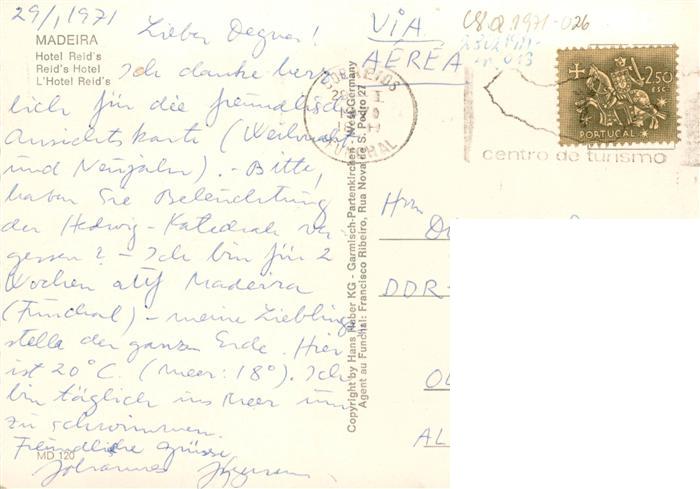 29/1 1971
MADEIRA
Hotel Reid's
Reid's Hotel
L'Hotel Reid's
Lieber Degner!
Ich danke herz
lich für die freundliche
Ansichtskarte (Weihnacht
und Neujahr). - Bitte,
haben Sie Beleuchtung
der Hedwig-Katedrale ver
gessen? - Ich bin für 2
Wochen auf Madeira
(Funchal) - meine Lieblings
stelle der ganzen Erde. Hier
ist 20°C. (Meer: 18°). Ich
bin täglich ins Meer um
zu schwimmen.
Freundliche Grüsse
Johannes
MD 120
Copyright by Hans Huber KG - Garmisch-Partenkirchen - West-Germany
Agent au Funchal: Francisco Ribeiro, Rua Nova de S. Pedro 27
VIA
AÉREA
1971-026
CORREIOS
FUNCHAL
2$50
ESC.
PORTUGAL
centro de turismo
Hrn
DDR-
AL